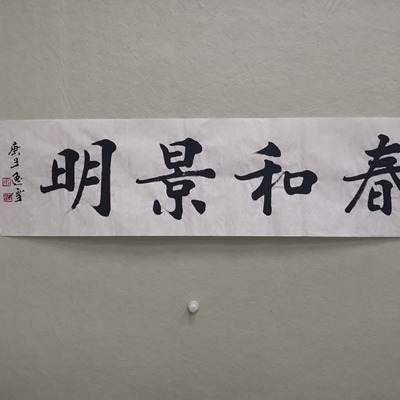 春和景明
庚子